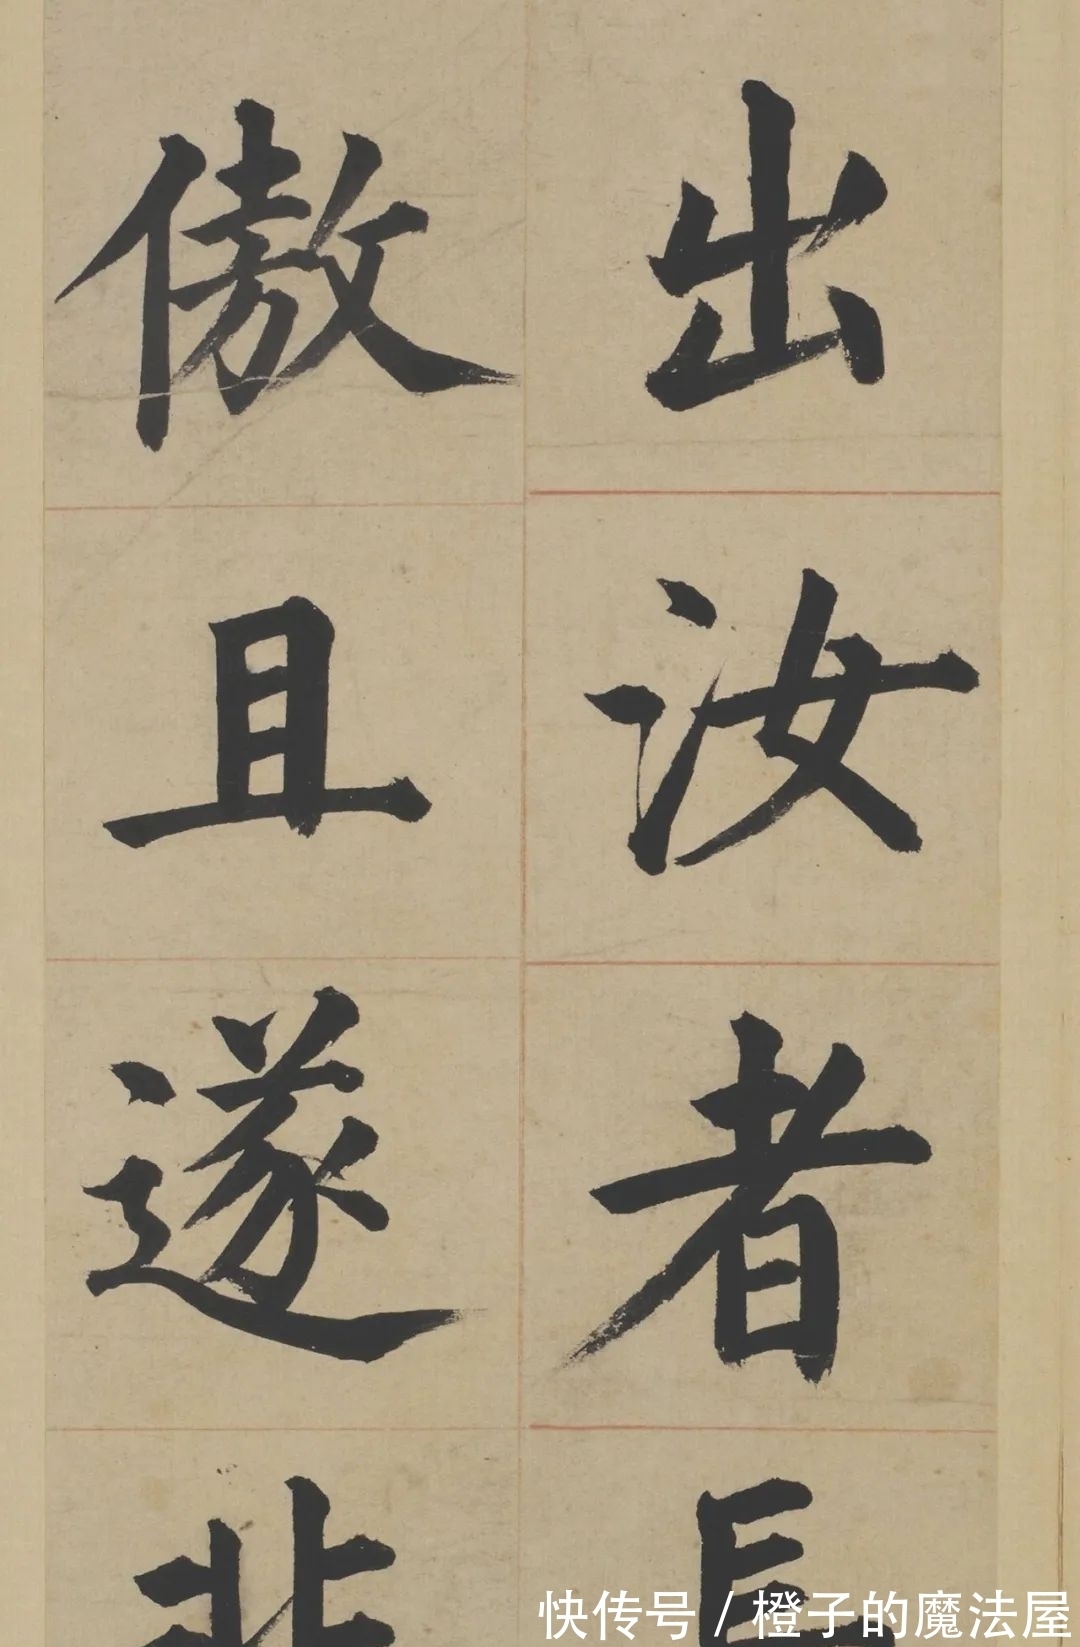 出汝者長
傲且遂非
快传号 / 橙子的魔法屋